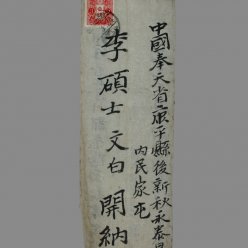 中國奉天省康平縣後新秋永泰
內民家屯
李碩士文白開納